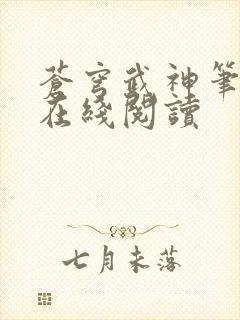 蒼穹武神筆
在綫閱讀
七月未落